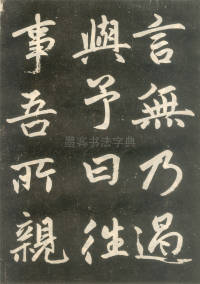 言無乃過
與予曰往
事吾所親
墨客书法字典